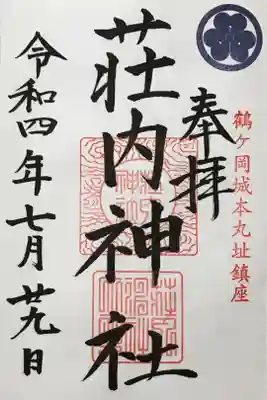 鶴ヶ岡城本丸址鎮座
奉拝
荘内神社
令和四年七月廿九日